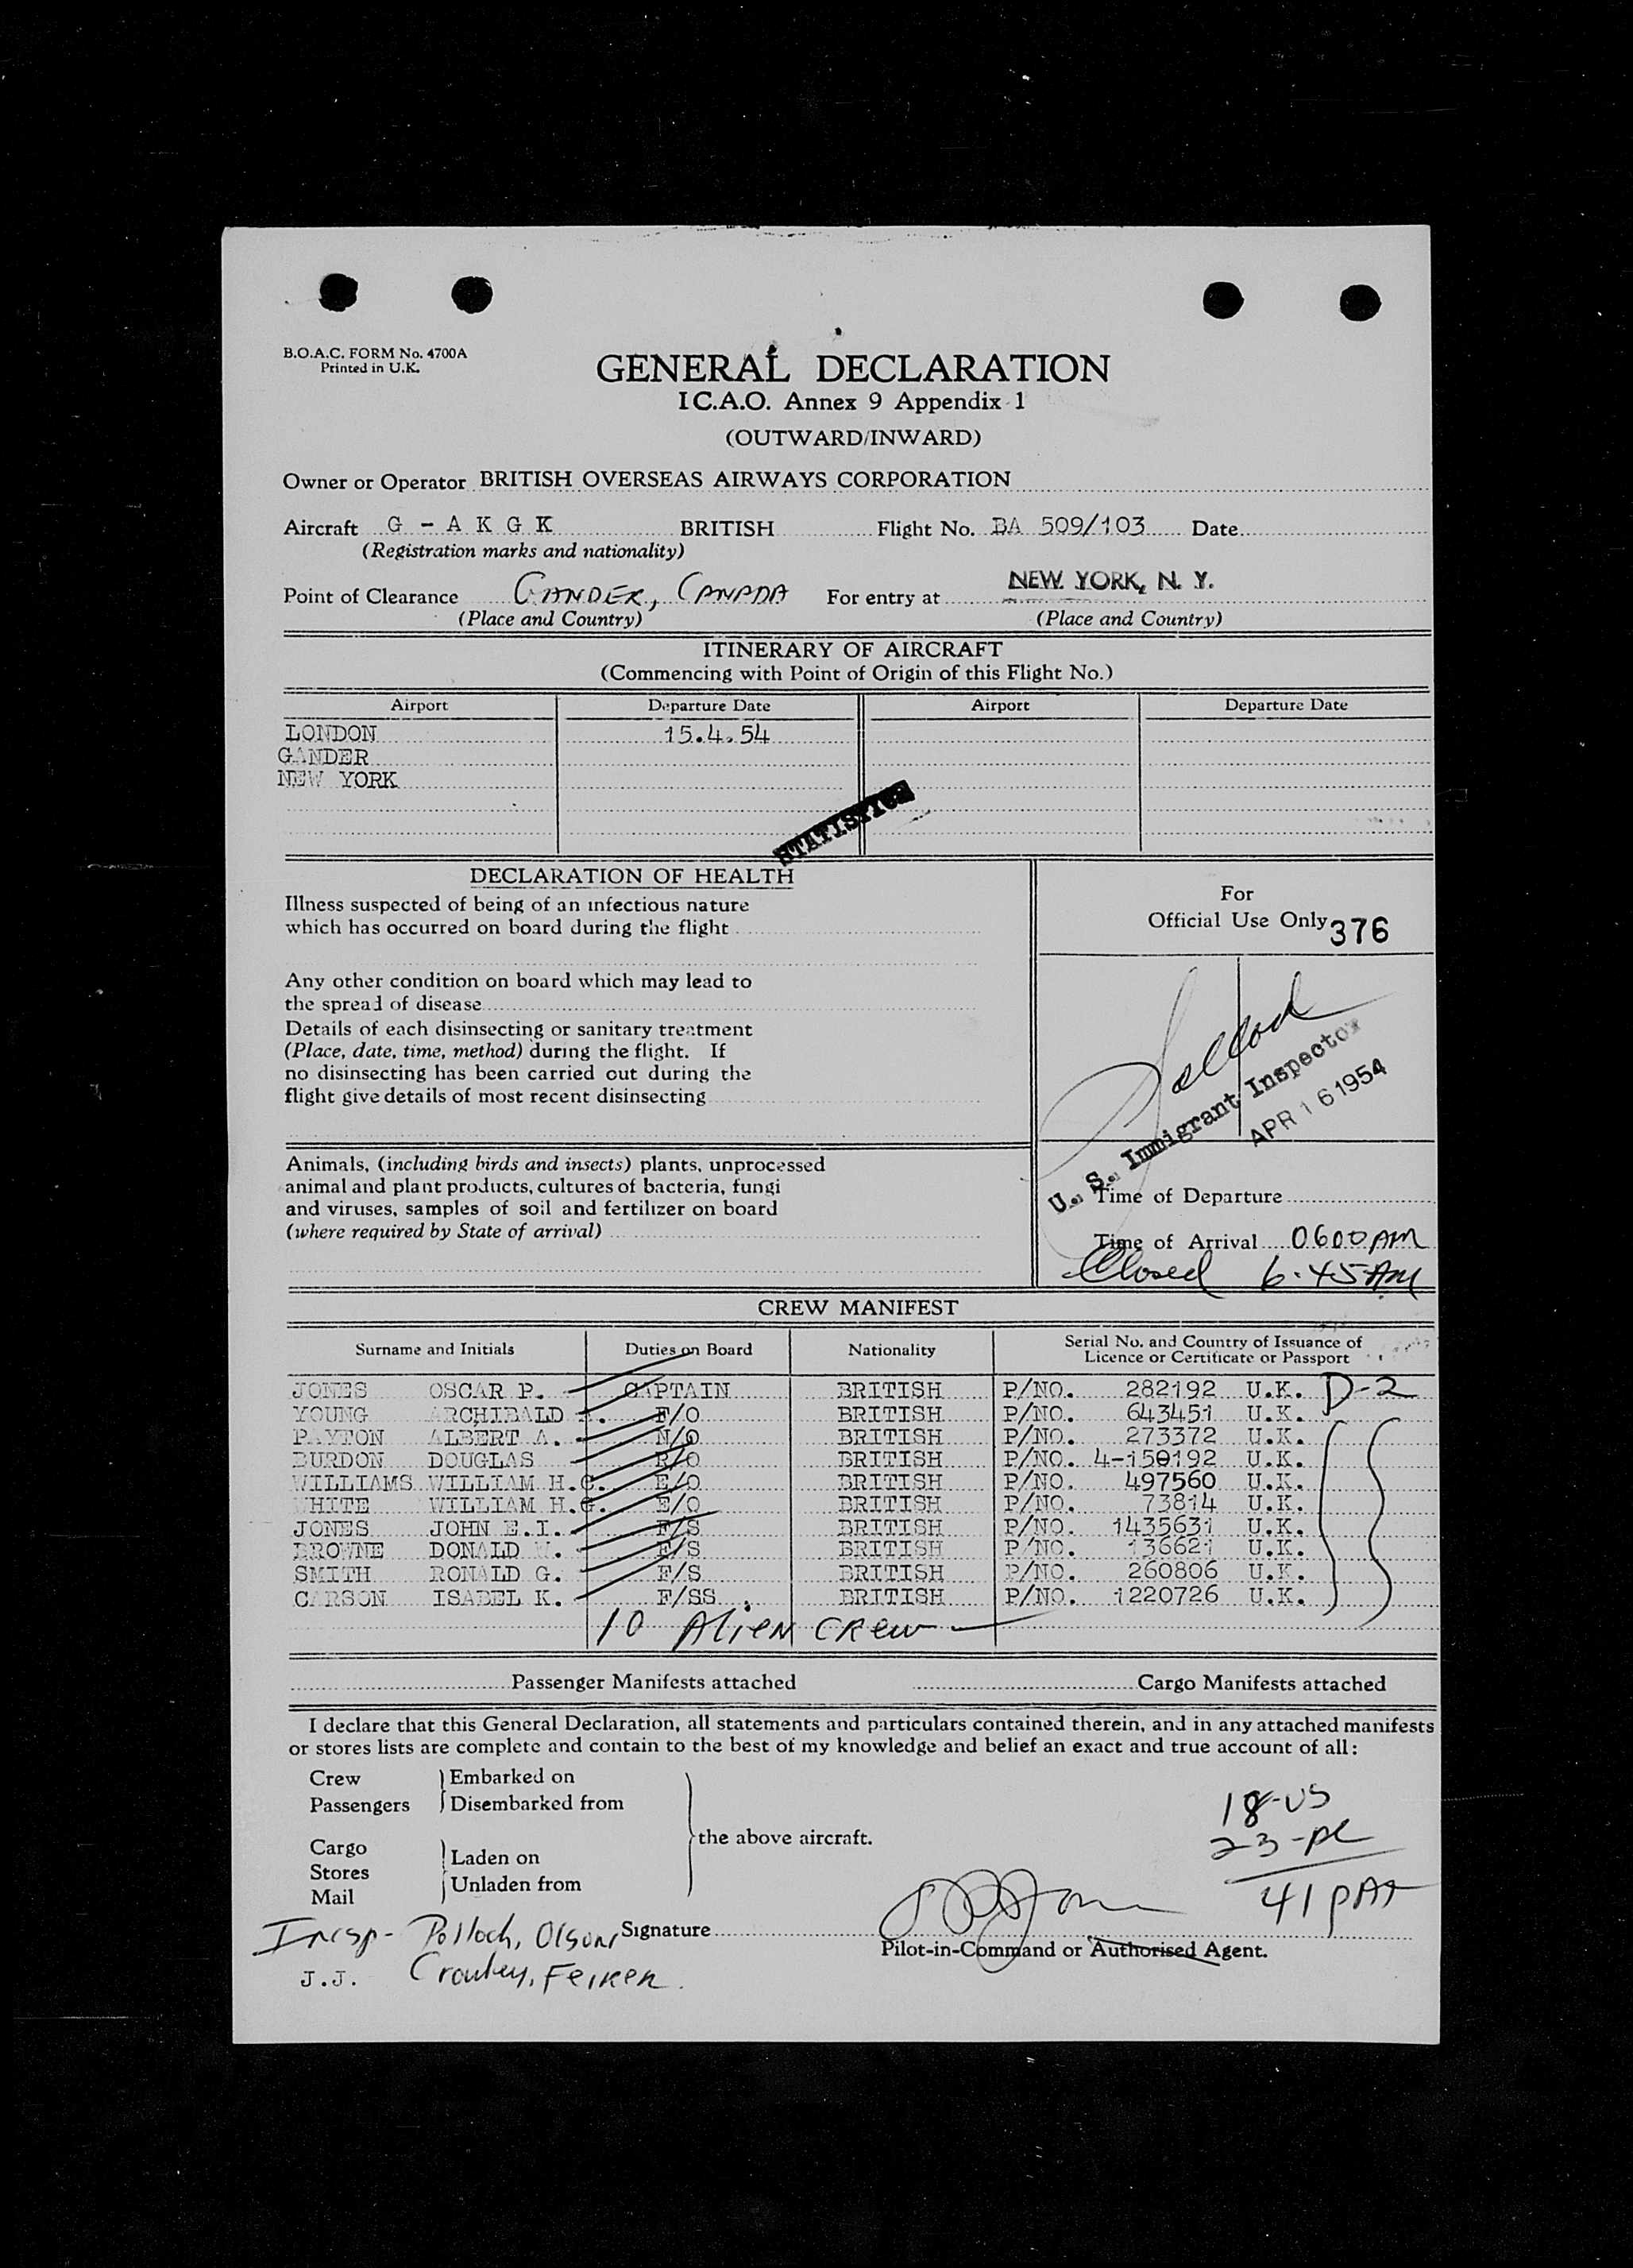 B.O.A.C. FORM No. 4700A
Printed in U.K.
GENERAL DECLARATION
I C.A.O. Annex 9 Appendix 1
(OUTWARD/INWARD)
Owner or Operator BRITISH OVERSEAS AIRWAYS CORPORATION
Aircraft G - A K G K BRITISH Flight No. BA 509/103 Date
(Registration marks and nationality)
Point of Clearance GANDER, CANADA For entry at NEW YORK, N. Y.
(Place and Country) (Place and Country)
ITINERARY OF AIRCRAFT
(Commencing with Point of Origin of this Flight No.)
Airport Departure Date Airport Departure Date
LONDON 15.4.54
GANDER
NEW YORK
STATISTICS
DECLARATION OF HEALTH
Illness suspected of being of an infectious nature
which has occurred on board during the flight
Any other condition on board which may lead to
the spread of disease
Details of each disinsecting or sanitary treatment
(Place, date, time, method) during the flight. If
no disinsecting has been carried out during the
flight give details of most recent disinsecting
Animals, (including birds and insects) plants, unprocessed
animal and plant products, cultures of bacteria, fungi
and viruses, samples of soil and fertilizer on board
(where required by State of arrival)
For
Official Use Only 376
U. S. Immigrant Inspector
APR 16 1954
Time of Departure
Time of Arrival 0600 AM
Closed 6.45 AM
CREW MANIFEST
Surname and Initials Duties on Board Nationality Serial No. and Country of Issuance of
Licence or Certificate or Passport
JONES OSCAR P. CAPTAIN BRITISH P/NO. 282192 U.K. D-2
YOUNG ARCHIBALD F/O BRITISH P/NO. 643451 U.K.
PAYTON ALBERT A. N/O BRITISH P/NO. 273372 U.K.
BURDON DOUGLAS R/O BRITISH P/NO. 4-150192 U.K.
WILLIAMS WILLIAM H.C. E/O BRITISH P/NO. 497560 U.K.
WHITE WILLIAM H.G. E/O BRITISH P/NO. 73814 U.K.
JONES JOHN E.I. F/S BRITISH P/NO. 1435631 U.K.
BROWNE DONALD W. F/S BRITISH P/NO. 136621 U.K.
SMITH RONALD G. F/S BRITISH P/NO. 260806 U.K.
CARSON ISABEL K. F/SS BRITISH P/NO. 1220726 U.K.
10 Alien Crew
Passenger Manifests attached Cargo Manifests attached
I declare that this General Declaration, all statements and particulars contained therein, and in any attached manifests
or stores lists are complete and contain to the best of my knowledge and belief an exact and true account of all:
Crew Embarked on
Passengers Disembarked from
the above aircraft.
Cargo Laden on
Stores
Mail Unladen from
18-US
23-
41
Insp- Pollock, Olson, Signature
Pilot-in-Command or Authorised Agent.
J.J. Crowley, Feiker